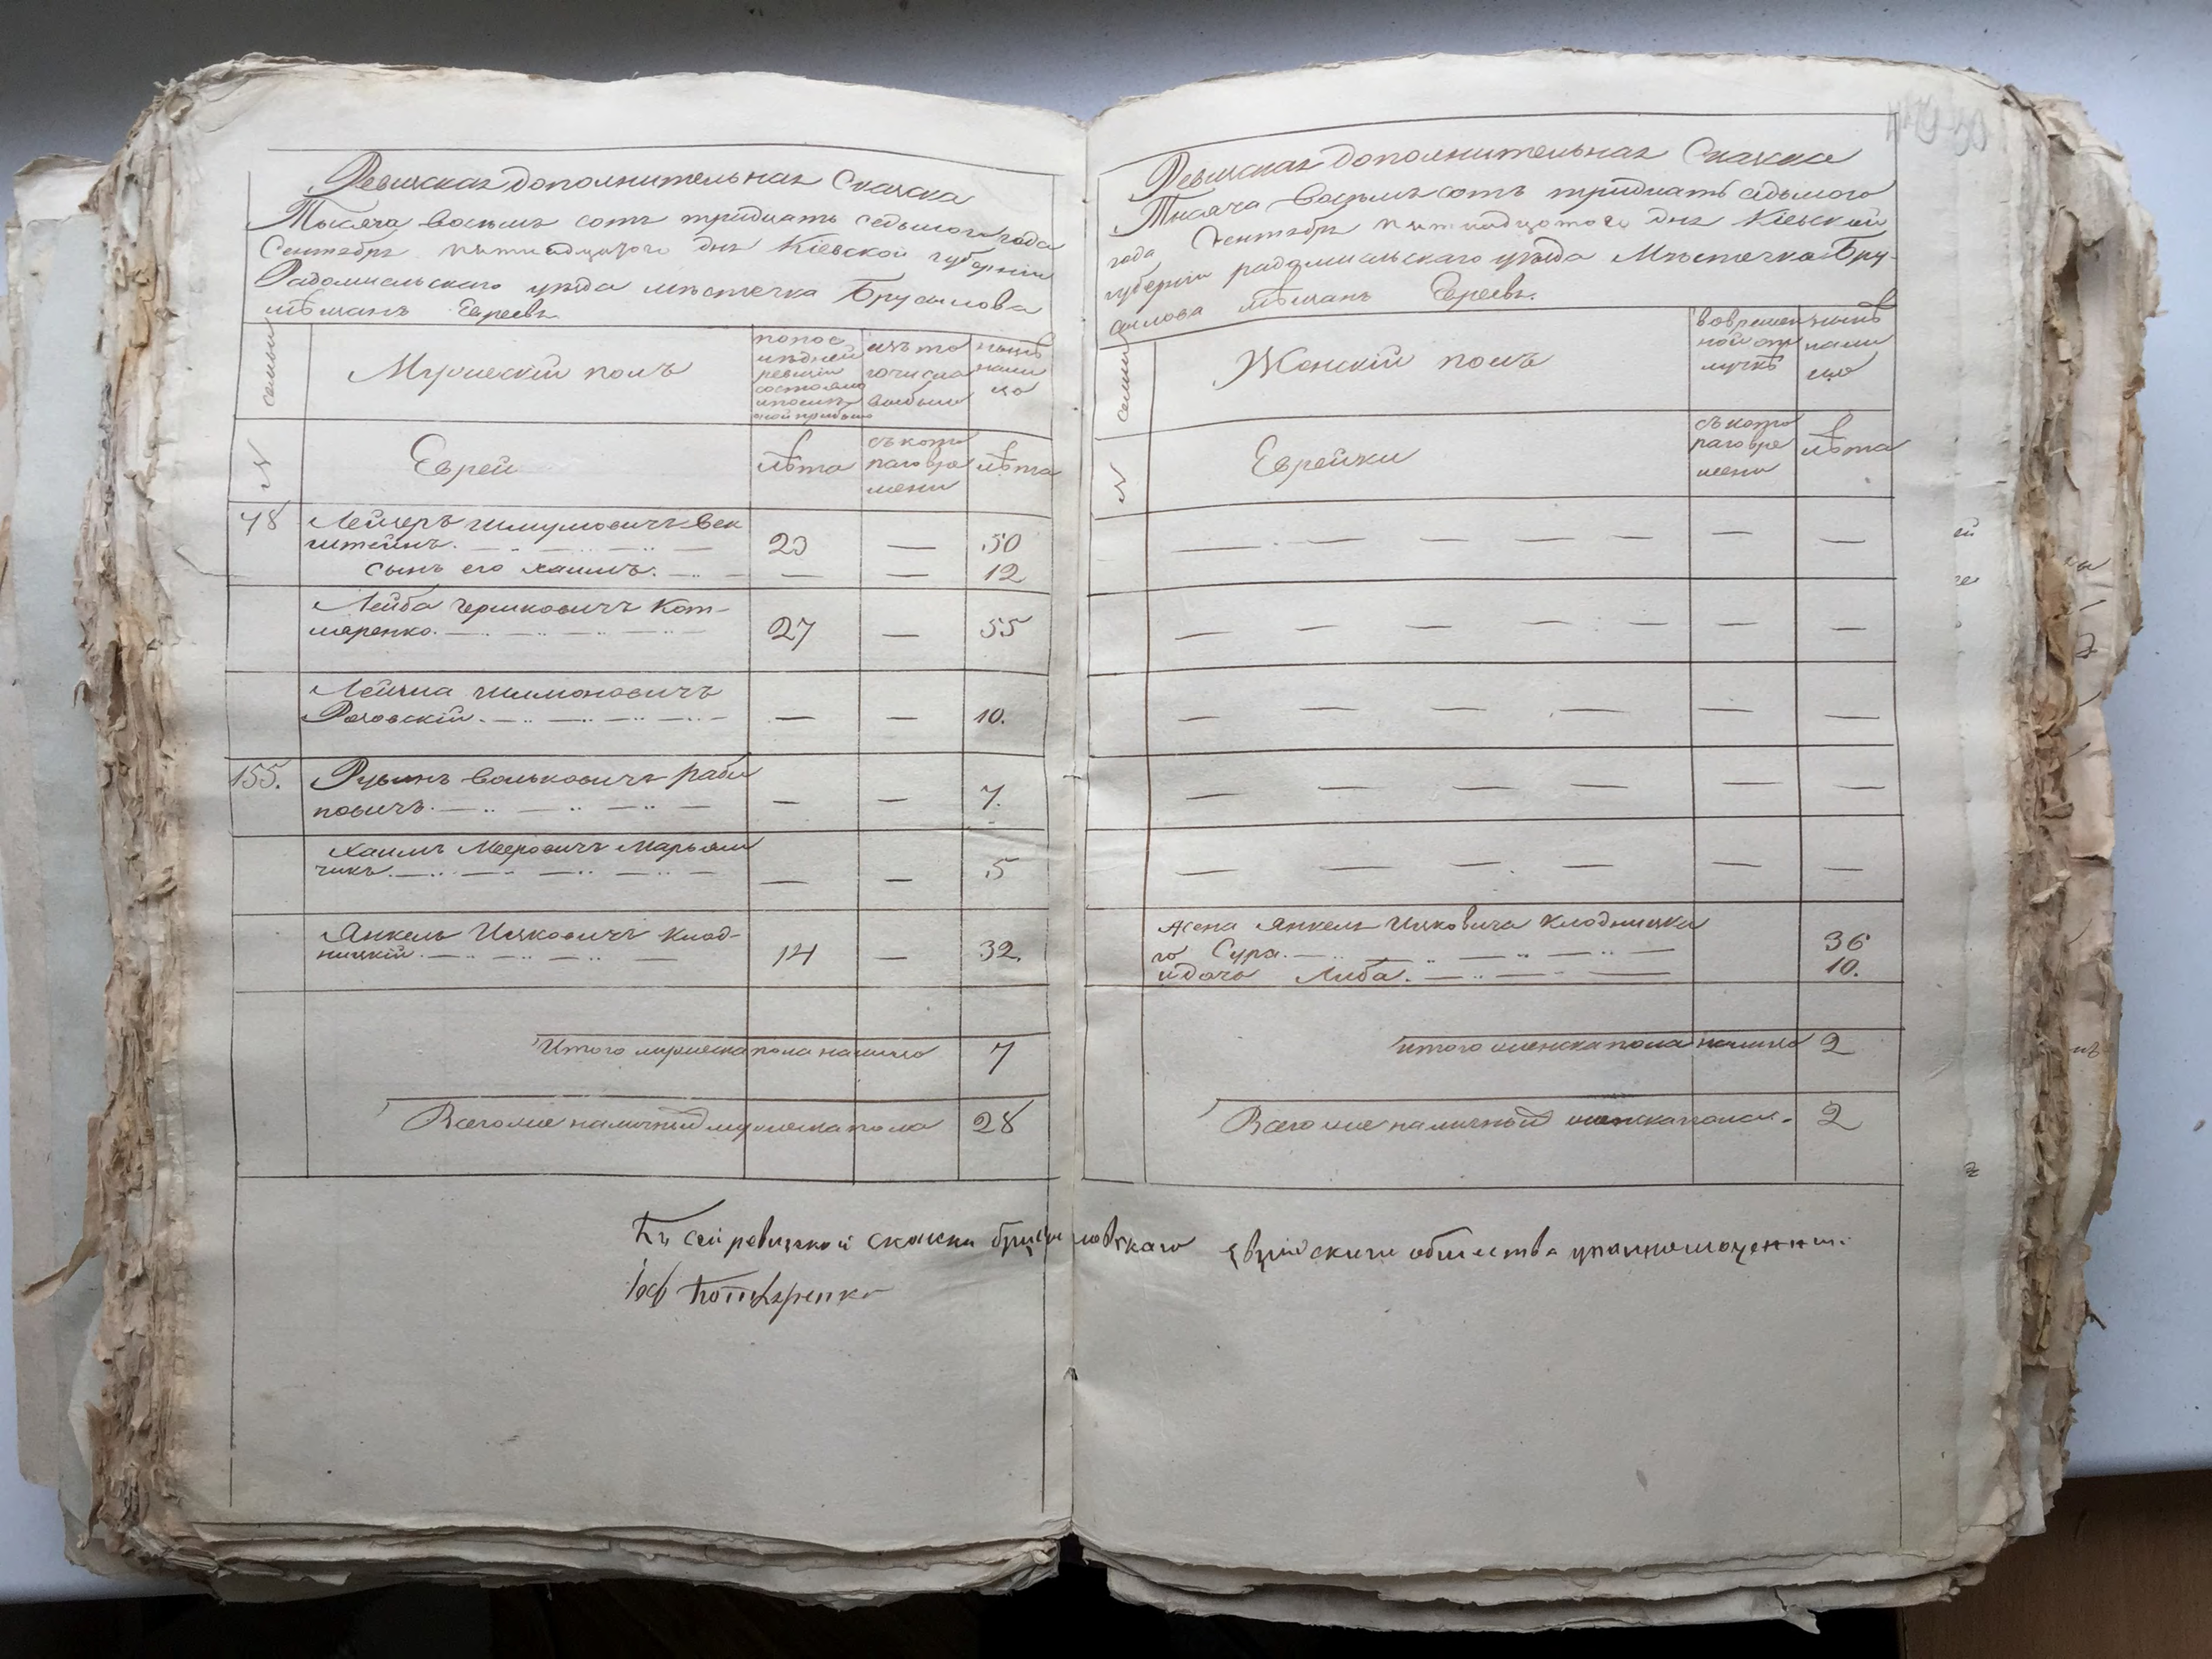 Ревизская дополнительная Сказка
Тысяча восемь сотъ тридцать седьмого года
Сентября пятнадцатого дня Кіевской губерніи
Радомысльскаго уѣзда мѣстечка Брусилова
мѣщанъ Евреевъ
семьи
Мужескій полъ
по пос
лѣдней
ревизіи
состояло
и послѣ
оной прибыло
изъ то
го числа
выбыло
нынѣ
нали
цо
№
Еврей
лѣта
съ кото
раго вре
мени
лѣта
78
Лейзеръ Шмулиовичъ Век
штейнъ.
23
—
50
Сынъ его Хаимъ.
—
—
12
Лейба Гершковичъ Кот
ляренко.
27
—
55
Шимоновичъ
—
—
10.
155.
Рувинъ Вольковичъ Раби
новичъ.
—
—
7.
Хаимъ Мееровичъ Марьям
чикъ.
—
—
5
Янкель Ицковичъ Клод-
ницкій.
14
—
32.
Итого мужеска пола налицо
7
Всего же наличныхъ мужеска пола
28
Ревизская дополнительная Сказка
Тысяча восемь сотъ тридцать седьмого
года Сентября пятнадцатого дня Кіевской
губерніи радомысльскаго уѣзда Мѣстечка Бру-
силова мѣщанъ Евреевъ.
семьи
Женскій полъ
во времен
ной от
лучкѣ
нынѣ
нали
цо
№
Еврейки
съ кото
раго вре
мени
лѣта
Жена Янкель Ицковича Клодницка
го Сура.
36
и дочь Либа.
10.
итого женска пола налицо
2
Всего же наличныхъ женска пола.
2
Къ сей ревизской сказки брусиловскаго Еврейскаго общества уполномоченный
Іос Котляренко